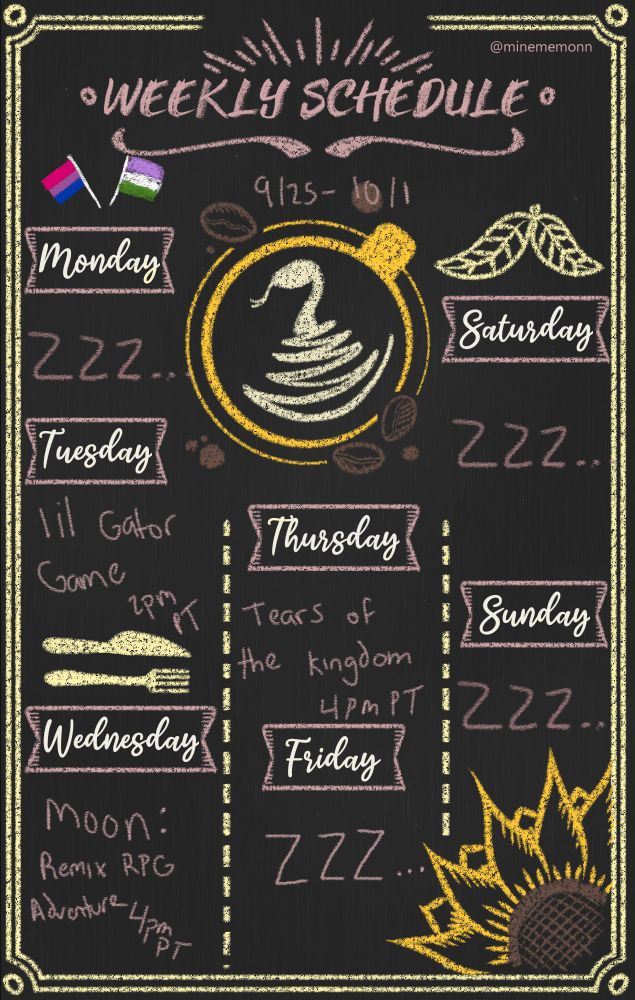 @minememonn
WEEKLY SCHEDULE
9/25-10/1
Monday
ZZZ...
Tuesday
lil Gator
Game
2pm
PT
Wednesday
Moon:
Remix RPG
Adventure 4pm
PT
Thursday
Tears of
the kingdom
4pm PT
Friday
ZZZ...
Saturday
ZZZ...
Sunday
ZZZ...